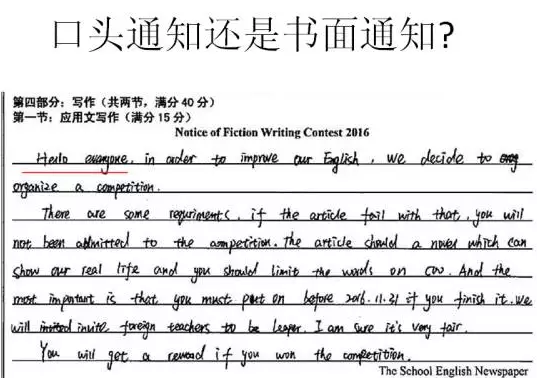 口头通知还是书面通知?
第四部分：写作（共两节，满分 40 分）
第一节：应用文写作（满分 15 分）
Notice of Fiction Writing Contest 2016
Hello everyone, in order to improve our English, we decide to
organize a competition.
There are some requriments, if the article fail with that, you will
not been admitted to the competition. The article should a novel which can
show our real life and you should limit the words on 600. And the
most important is that you must put on before 2016.11.31 if you finish it. We
will invite foreign teachers to be I am sure it's very fair.
You will get a reward if you won the competition.
The School English Newspaper